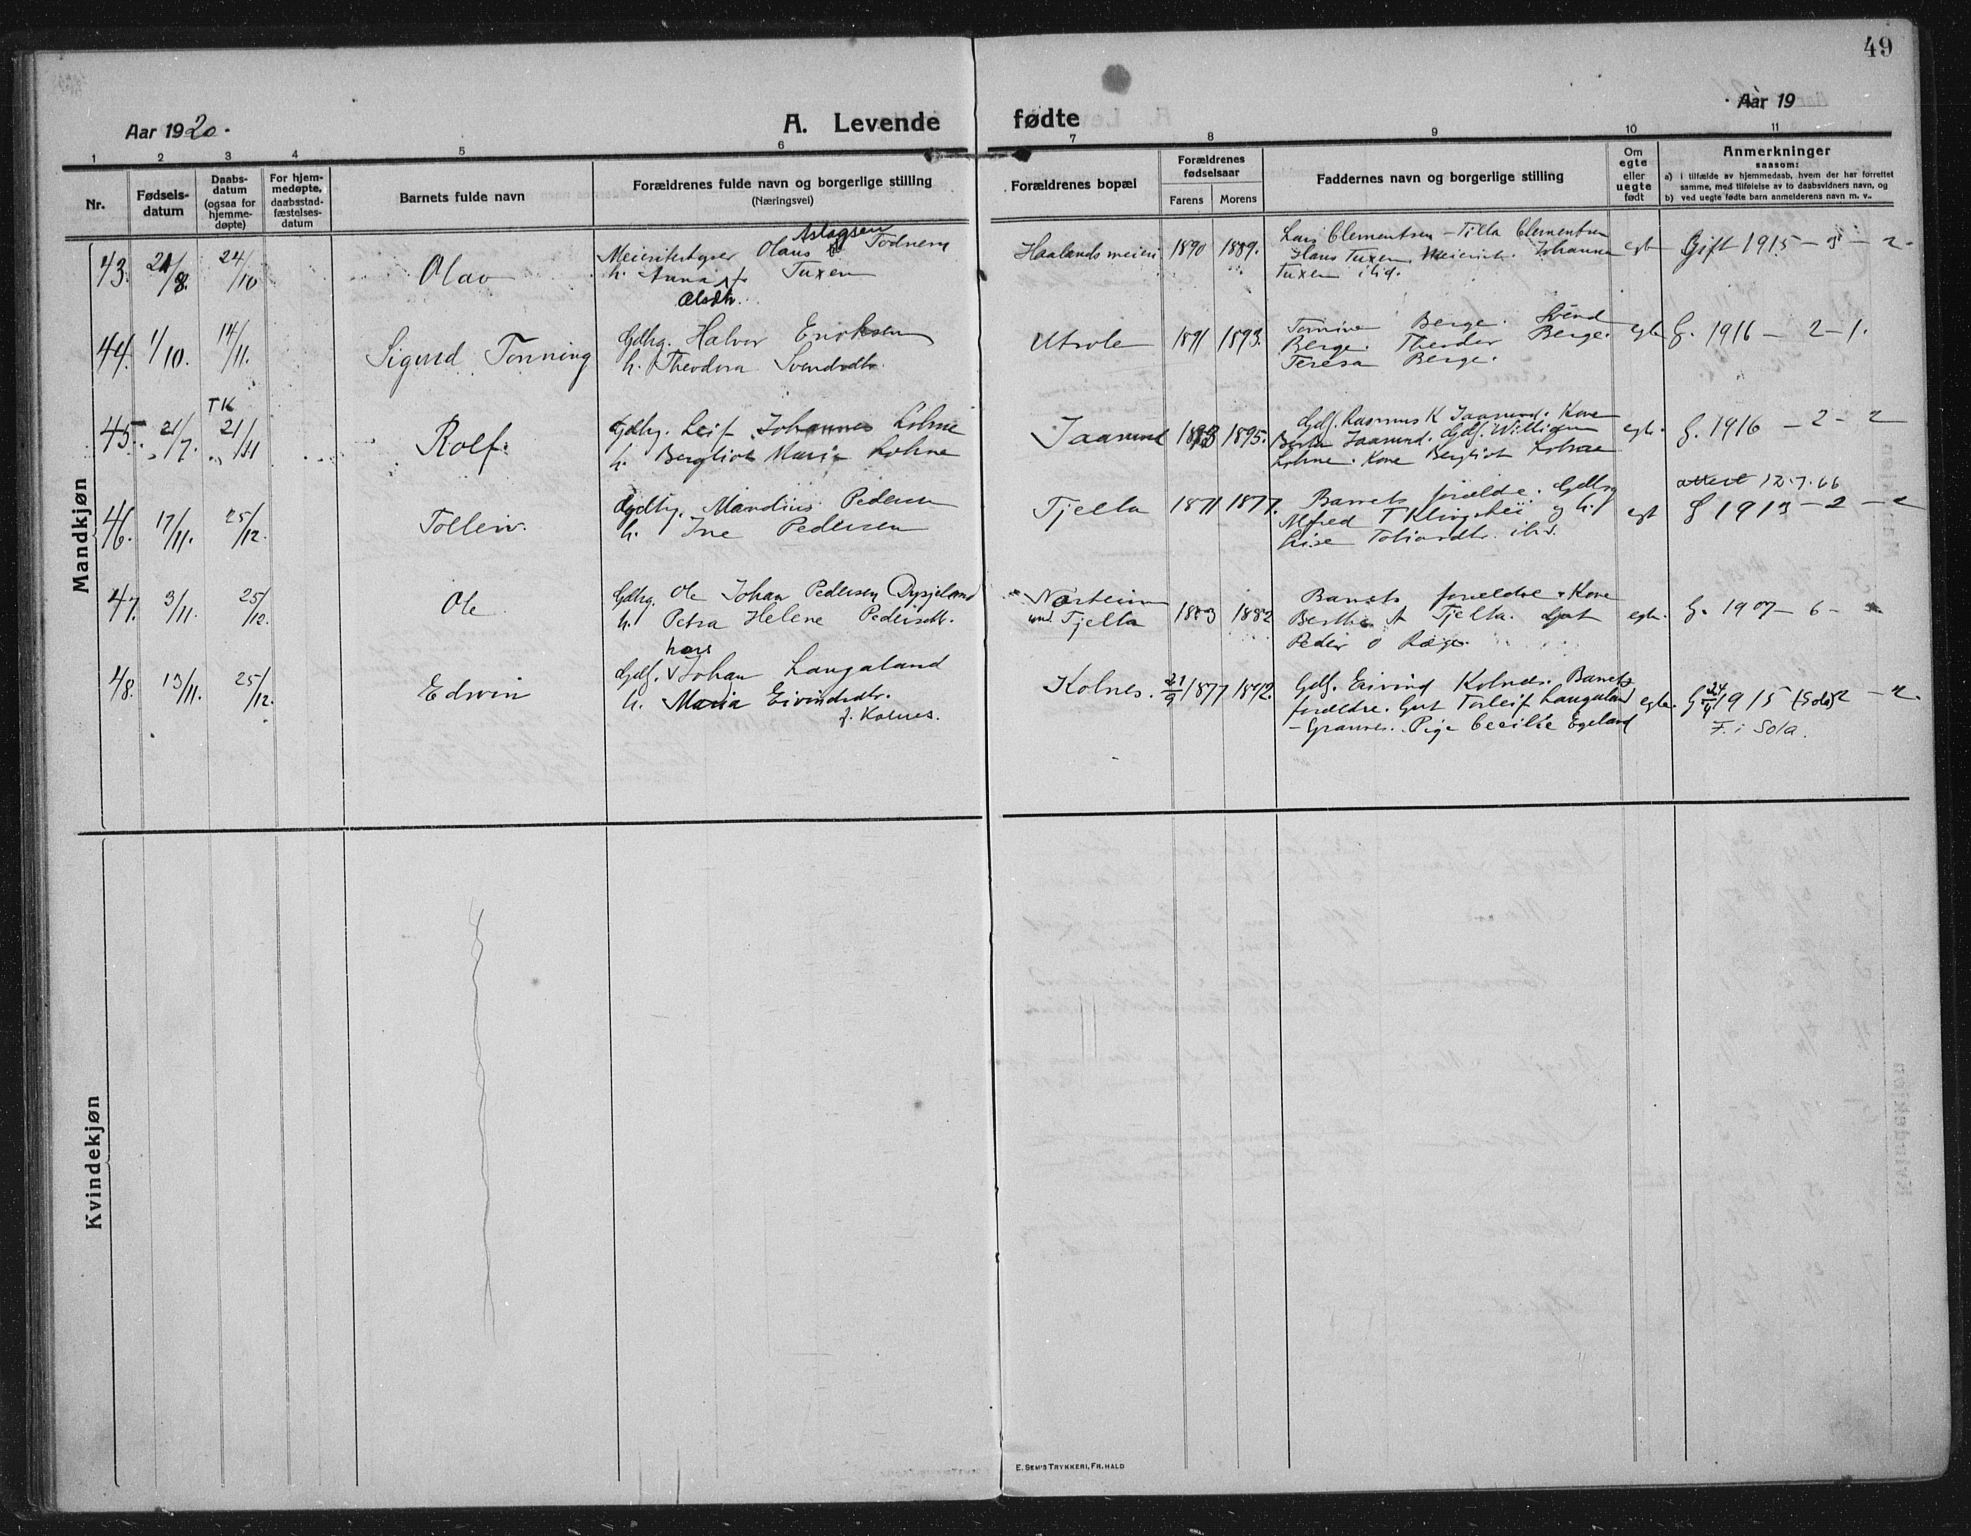 49
Aar 1920.
A. Levende
fødte
Aar 19
1 2 3 4 5 6 7 8 9 10 11
Nr.
Fødsels-
datum
Daabs-
datum
(ogsaa for
hjemme-
døpte)
For hjem-
medøpte,
daabsstad-
fæstelses-
datum
Barnets fulde navn
Forældrenes fulde navn og borgerlige stilling
(Næringsvei)
Forældrenes bopæl
Forældrenes
fødselsaar
Farens Morens
Faddernes navn og borgerlige stilling
Om
egte
eller
uegte
født
Anmerkninger
saasom:
a) i tilfælde av hjemmedaab, hvem der har forrettet
samme, med tilføielse av to daabsvidners navn, og
b) ved uegte fødte barn anmelderens navn m. v.
Mandkjøn
43. 21/8. 24/10 Olav
Aslagsen
Meieribestyrer Olaus Todnem
h. Anna Tuxen
Olsdtr.
Haalands meieri 1890 1889.
Lars Clementsen - Tilla Clementsen
Hans Tuxen, Meierist. Johanna
Tuxen ibid.
egt Gift 1915 - - 2.
44. 1/10. 14/11. Sigurd Tonning
Gdbg. Halvor Eriksen
h. Theodora Svendsdtr.
Utsole 1891 1893.
Tomine Berge. Svend
Berge. Theodor Berge.
Teresa Berge.
egte G. 1916 - 2 - 1.
TK
45. 21/7. 21/11 Rolf.
Gdbg. Leif Johannes Lohne
h. Bergliot Marie Lohne
Jaasund 1893 1895.
Gdf. Rasmus K Jaasund. Kone
Berta Jaasund. Gdf. William
Lohne. Kone Bergliot Lohne
egte. G. 1916 - 2 - 2
attest 12.7.66
46. 17/11. 25/12. Tolleiv.
Gdbg. Mandius Pedersen
h. Ine Pedersen
Tjelta 1871 1877.
Barnets forældre. Gdbg
Alfred T Klingsheí og h.
Lise Tobiasdtr. ibid.
egt G 1913 - 2 - 2
47. 3/11. 25/12. Ole
Gdbg. Ole Johan Pedersen Dysjeland
h. Petra Helene Pedersdtr.
Norheim
und. Tjelta
1883 1882
Barnets forældre. Kone
Berthe A Tjelta. Gut
Peder O Ræge.
egte. G. 1907 - 6 -
48. 13/11. 25/12. Edwin
Hans
Gdf. Johan Langaland
h. Maria Eivindsdtr.
f. Kolnes.
Kolnes. 21/9 1877 1872.
Gdf. Eivind Kolnes. Barnets
forældre. Gut Torleif Langaland
- Grannes. Pige Cecilie Egeland
egte. G 24/4 1915 (Sola) 2 - 2.
F. i Sola.
Kvindekjøn
E. SEM'S TRYKKERI, FR.HALD